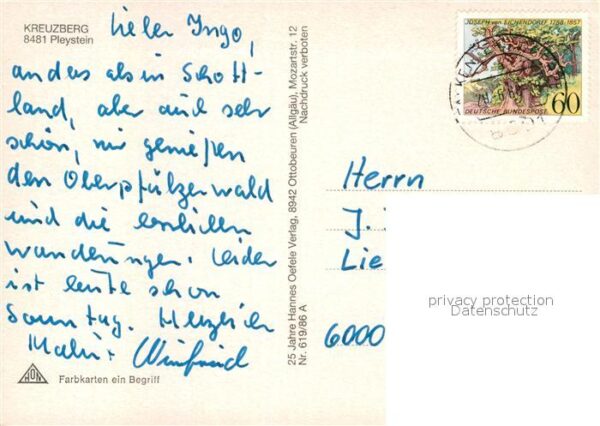 KREUZBERG
8481 Pleystein
Lieber Ingo,
anders als in Schott-
land, aber auch sehr
schön, wir genießen
den Oberpfälzerwald
und die
wanderungen. Leider
ist heute schon
Sonntag. Herzlich
Winfried
Farbkarten ein Begriff
25 Jahre Hannes Oefele Verlag, 8942 Ottobeuren (Allgäu), Mozartstr. 12
Nr. 619/86 A
Nachdruck verboten
JOSEPH von EICHENDORFF 1788-1857
60
DEUTSCHE BUNDESPOST
Herrn
J.
Lie
6000
privacy protection
Datenschutz